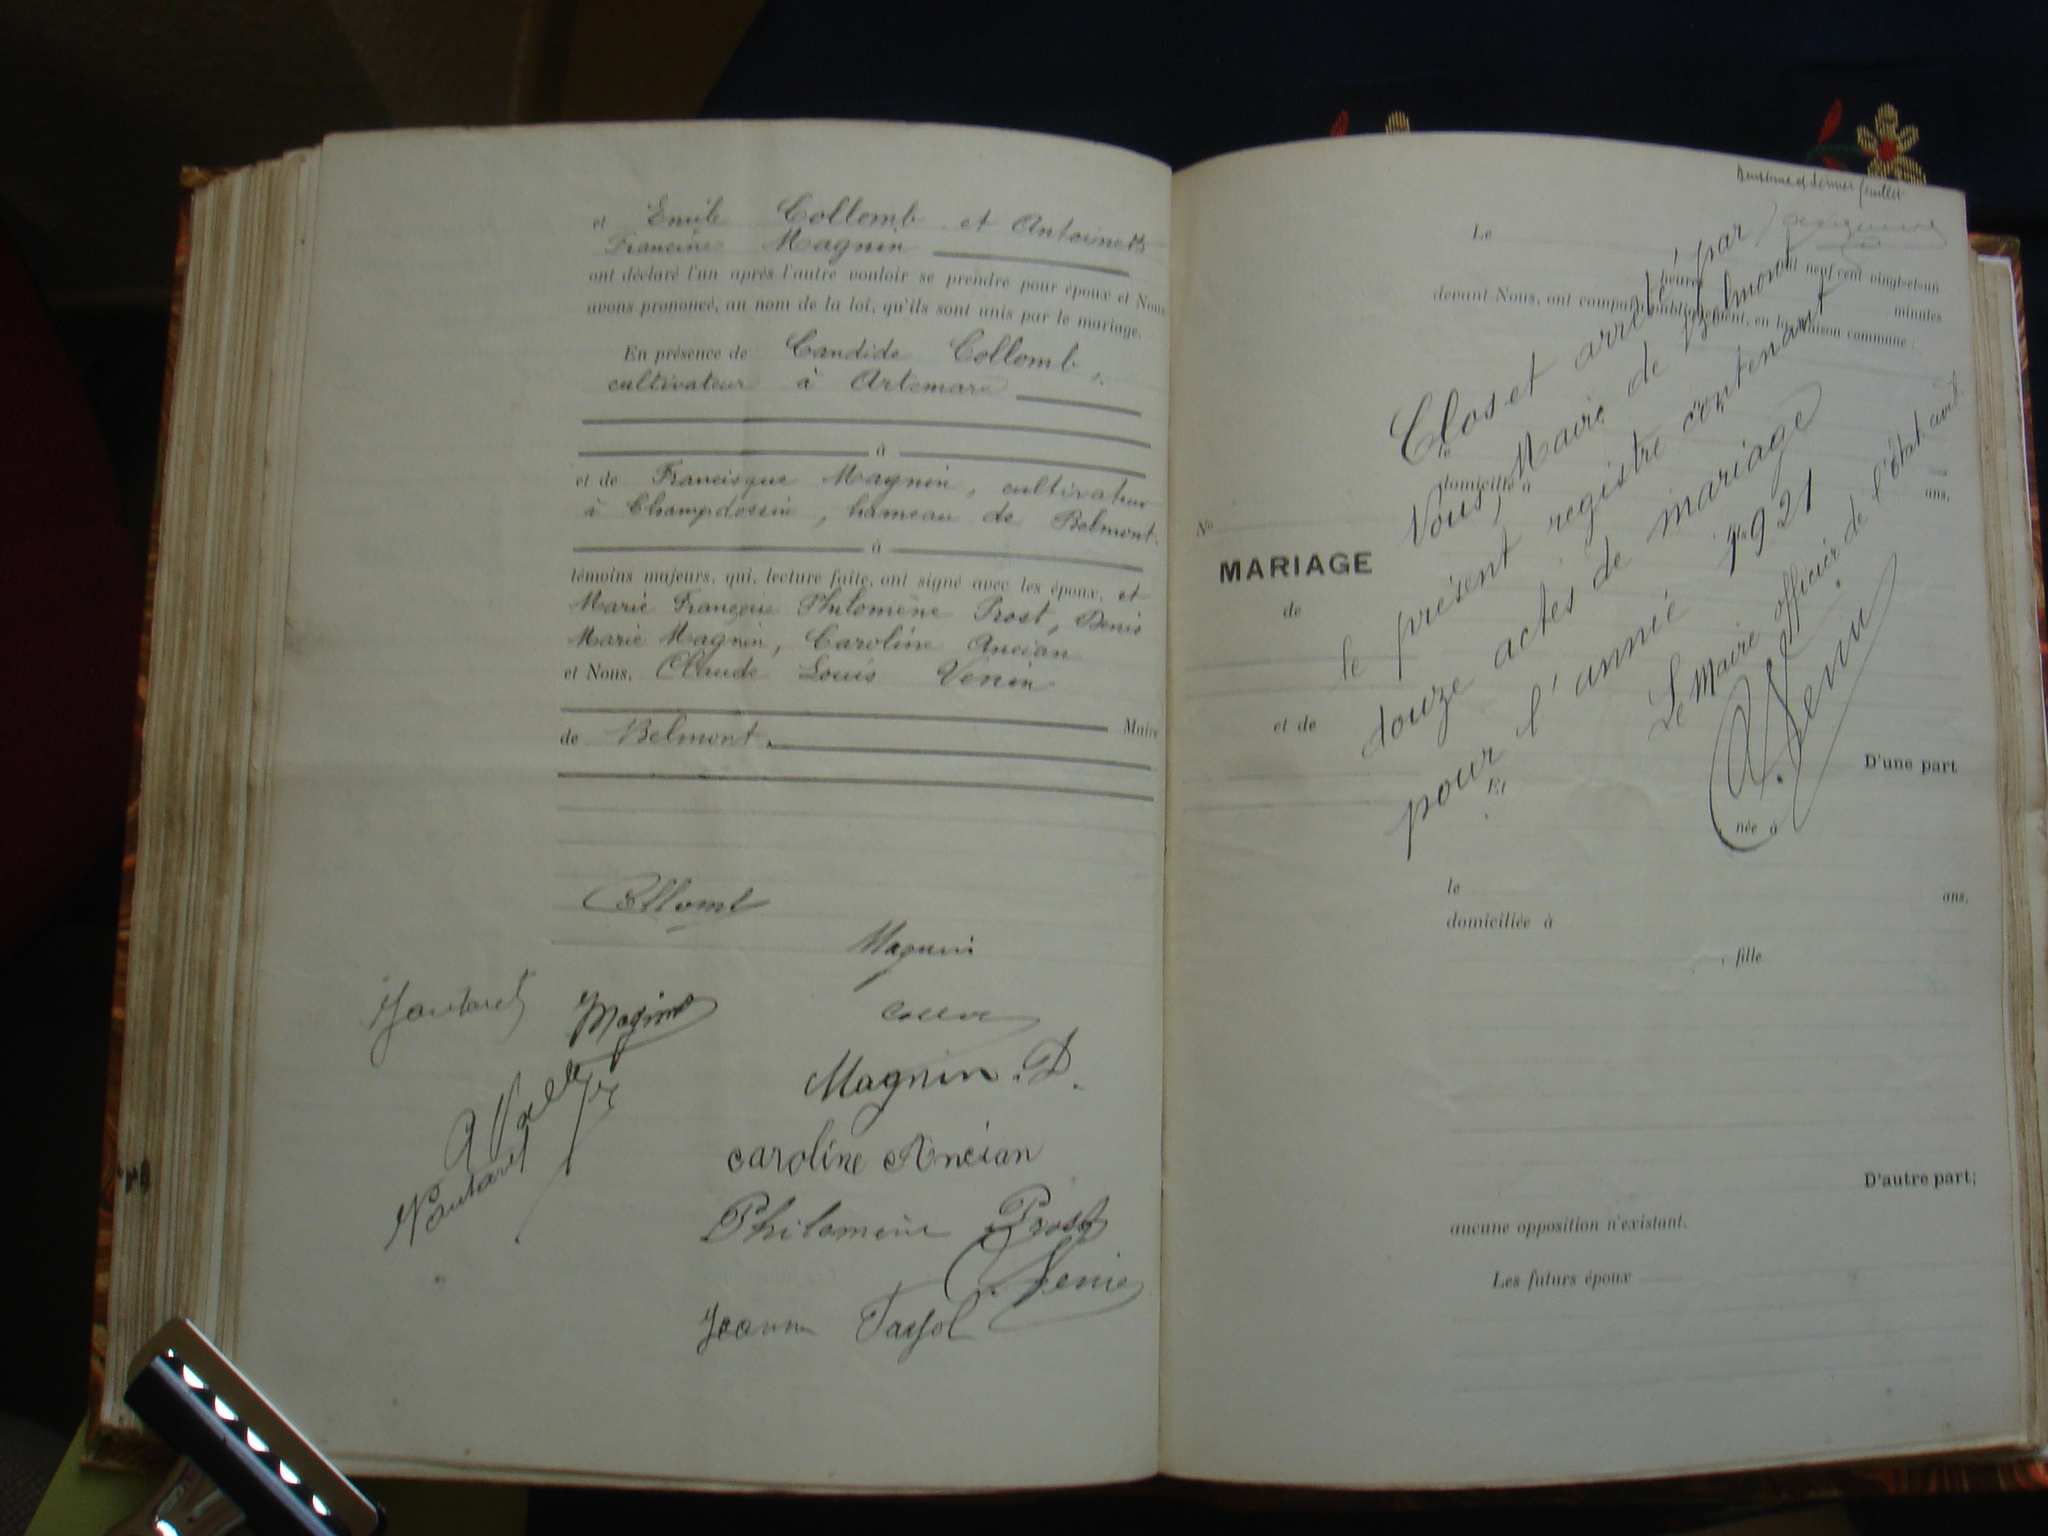 et Emile Collomb et Antoinette
Francine Magnin
ont déclaré l'un après l'autre vouloir se prendre pour époux et Nous
avons prononcé, au nom de la loi, qu'ils sont unis par le mariage.
En présence de Candide Collomb,
cultivateur à Artemare
à
et de Francisque Magnin, cultivateur
à Champdossin, hameau de Belmont.
à
témoins majeurs, qui, lecture faite, ont signé avec les époux, et
Marie Françoise Philomène Prost, Denis
Marie Magnin, Caroline Ancian
et Nous, Claude Louis Venin
Maire
de Belmont.
Collomb
Magnin
Magnin
Magnin. D.
Caroline Ancian
Philomène Prost
Venin
Jeanne
Deuxième et dernier feuillet
Le
mil neuf cent vingt-et-un
heures
minutes
devant Nous, ont comparu publiquement, en la maison commune :
Clos et arrêté par
Nous, Maire de Belmont
le présent registre contenant
douze actes de mariage
pour l'année 1921
Le Maire officier de l'état civil
Venin
le
domicilié à
ans,
No
MARIAGE
de
et de
D'une part
Et
née à
le
ans,
domiciliée à
fille
D'autre part;
aucune opposition n'existant.
Les futurs époux